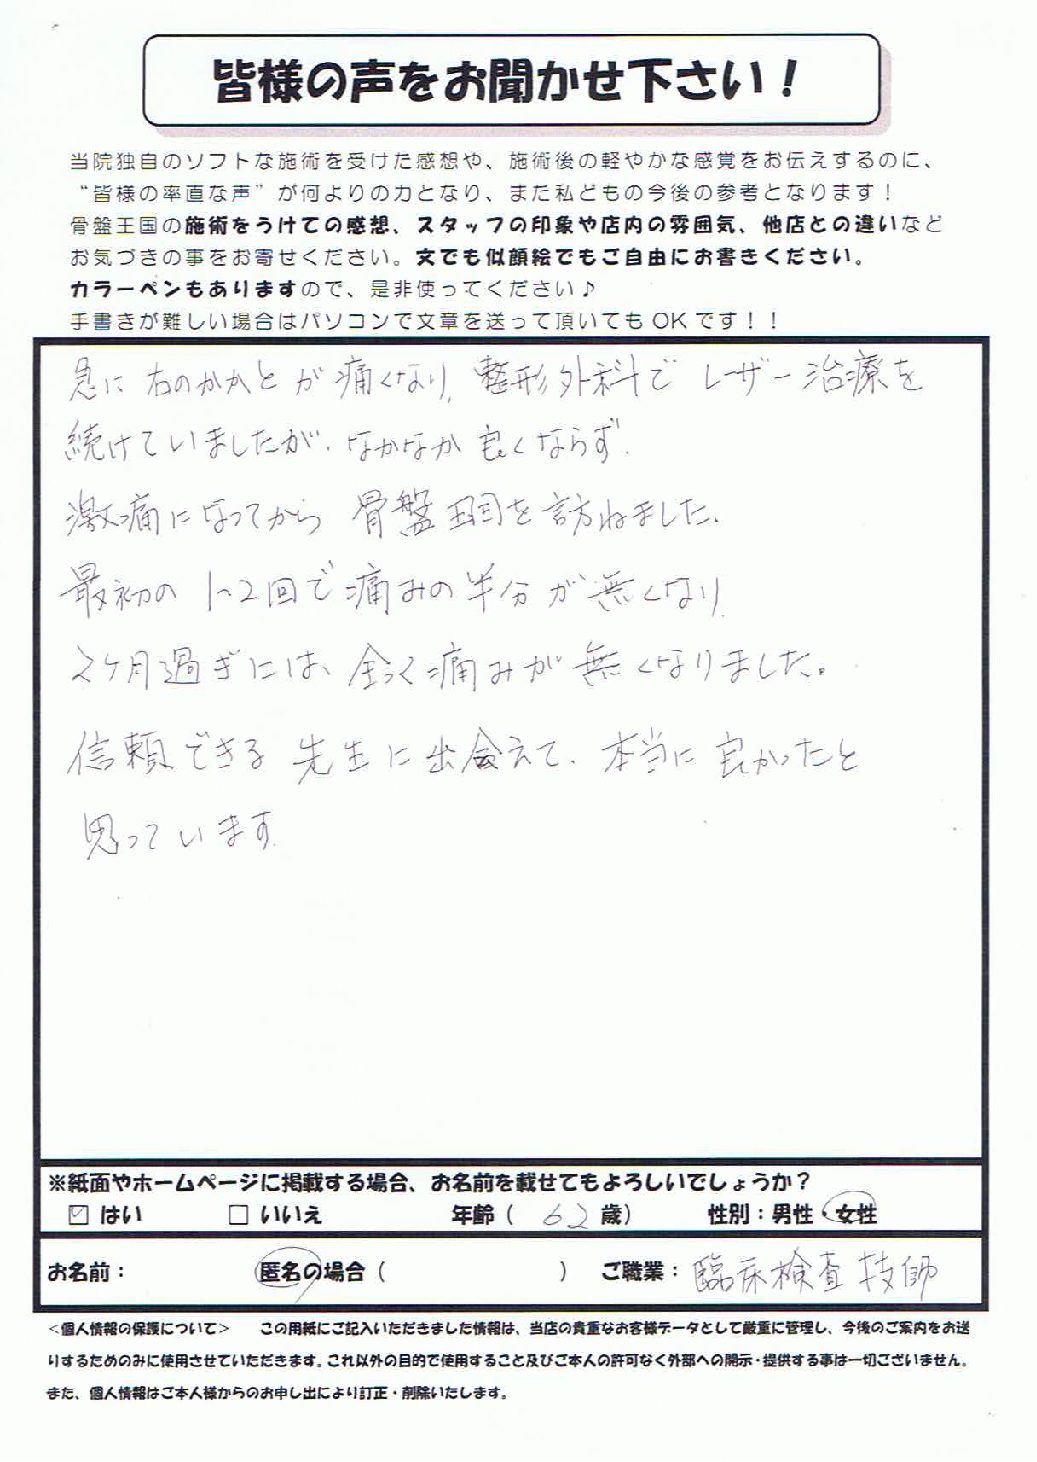 皆様の声をお聞かせ下さい！
当院独自のソフトな施術を受けた感想や、施術後の軽やかな感覚をお伝えするのに、
“皆様の率直な声”が何よりの力となり、また私どもの今後の参考となります！
骨盤王国の施術をうけての感想、スタッフの印象や店内の雰囲気、他店との違いなど
お気づきの事をお寄せください。文でも似顔絵でもご自由にお書きください。
カラーペンもありますので、是非使ってください♪
手書きが難しい場合はパソコンで文章を送って頂いてもOKです！！
急に右のかかとが痛くなり、整形外科でレーザー治療を
続けていましたが、なかなか良くならず、
激痛になってから骨盤王国を訪ねました。
最初の1~2回で痛みの半分が無くなり、
2ヶ月過ぎには、全く痛みが無くなりました。
信頼できる先生に出会えて、本当に良かったと
思っています。
※紙面やホームページに掲載する場合、お名前を載せてもよろしいでしょうか？
☑ はい □ いいえ 年齢（ 62 歳） 性別：男性・女性
お名前： 匿名の場合（ ） ご職業：臨床検査技師
＜個人情報の保護について＞ この用紙にご記入いただきました情報は、当店の貴重なお客様データとして厳重に管理し、今後のご案内をお送
りするためのみに使用させていただきます。これ以外の目的で使用すること及びご本人の許可なく外部への開示・提供する事は一切ございません。
また、個人情報はご本人様からのお申し出により訂正・削除いたします。